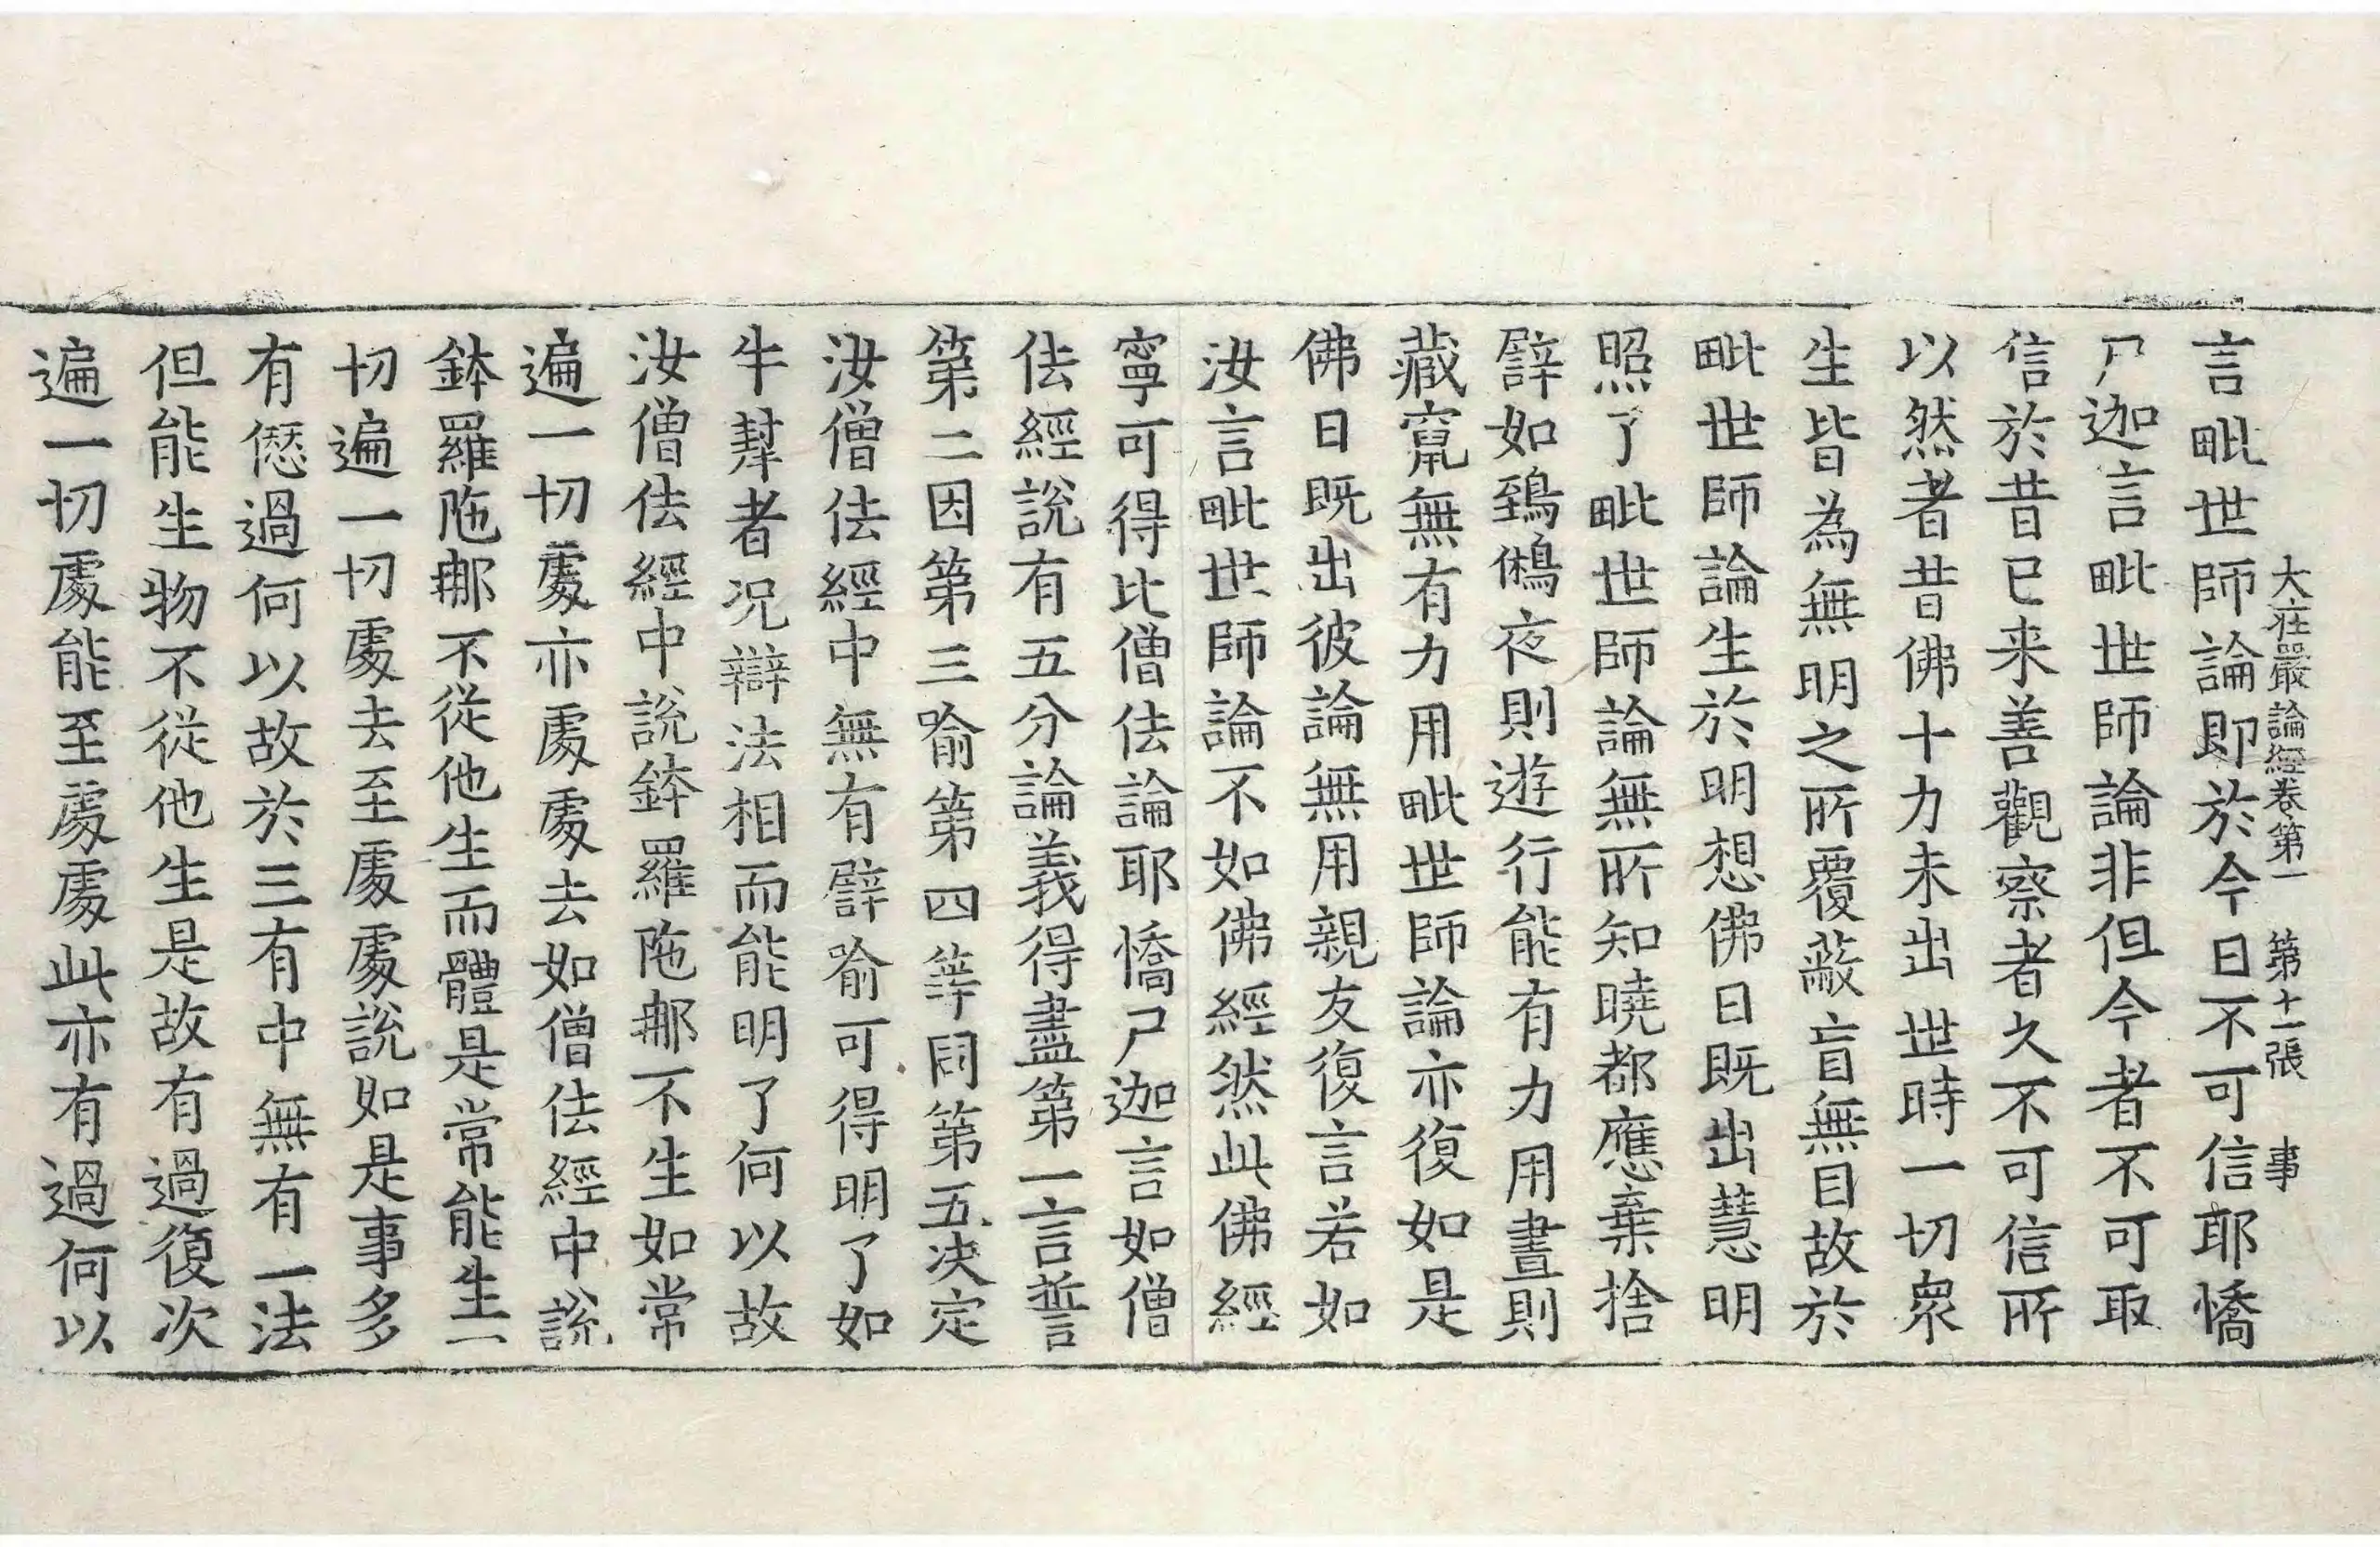 大庄嚴論經卷第一 第十一張 事
言毗世師論即於今日不可信耶憍
尸迦言毗世師論非但今者不可取
信於昔已来善觀察者久不可信所
以然者昔佛十力未出世時一切衆
生皆為無明之所覆蔽盲無目故於
毗世師論生於明想佛日既出慧明
照了毗世師論無所知曉都應棄捨
譬如鵄鵂夜則遊行能有力用晝則
藏竄無有力用毗世師論亦復如是
佛日既出彼論無用親友復言若如
汝言毗世師論不如佛經然此佛經
寧可得比僧佉論耶憍尸迦言如僧
佉經說有五分論義得盡第一言誓
第二因第三喻第四等同第五决定
汝僧佉經中無有譬喻可得明了如
牛犎者况辯法相而能明了何以故
汝僧佉經中說鉢羅陁那不生如常
遍一切處亦處處去如僧佉經中說
鉢羅陁那不從他生而體是常能生一
切遍一切處去至處處說如是事多
有𠍴過何以故於三有中無有一法
但能生物不從他生是故有過復次
遍一切處能至處處此亦有過何以